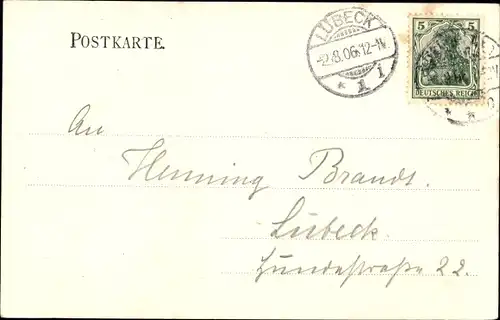 POSTKARTE.
LÜBECK
-2.8.06.12-N.
* 1 i
5 5
DEUTSCHES REICH
An
Henning Brands.
Lübeck.
22.